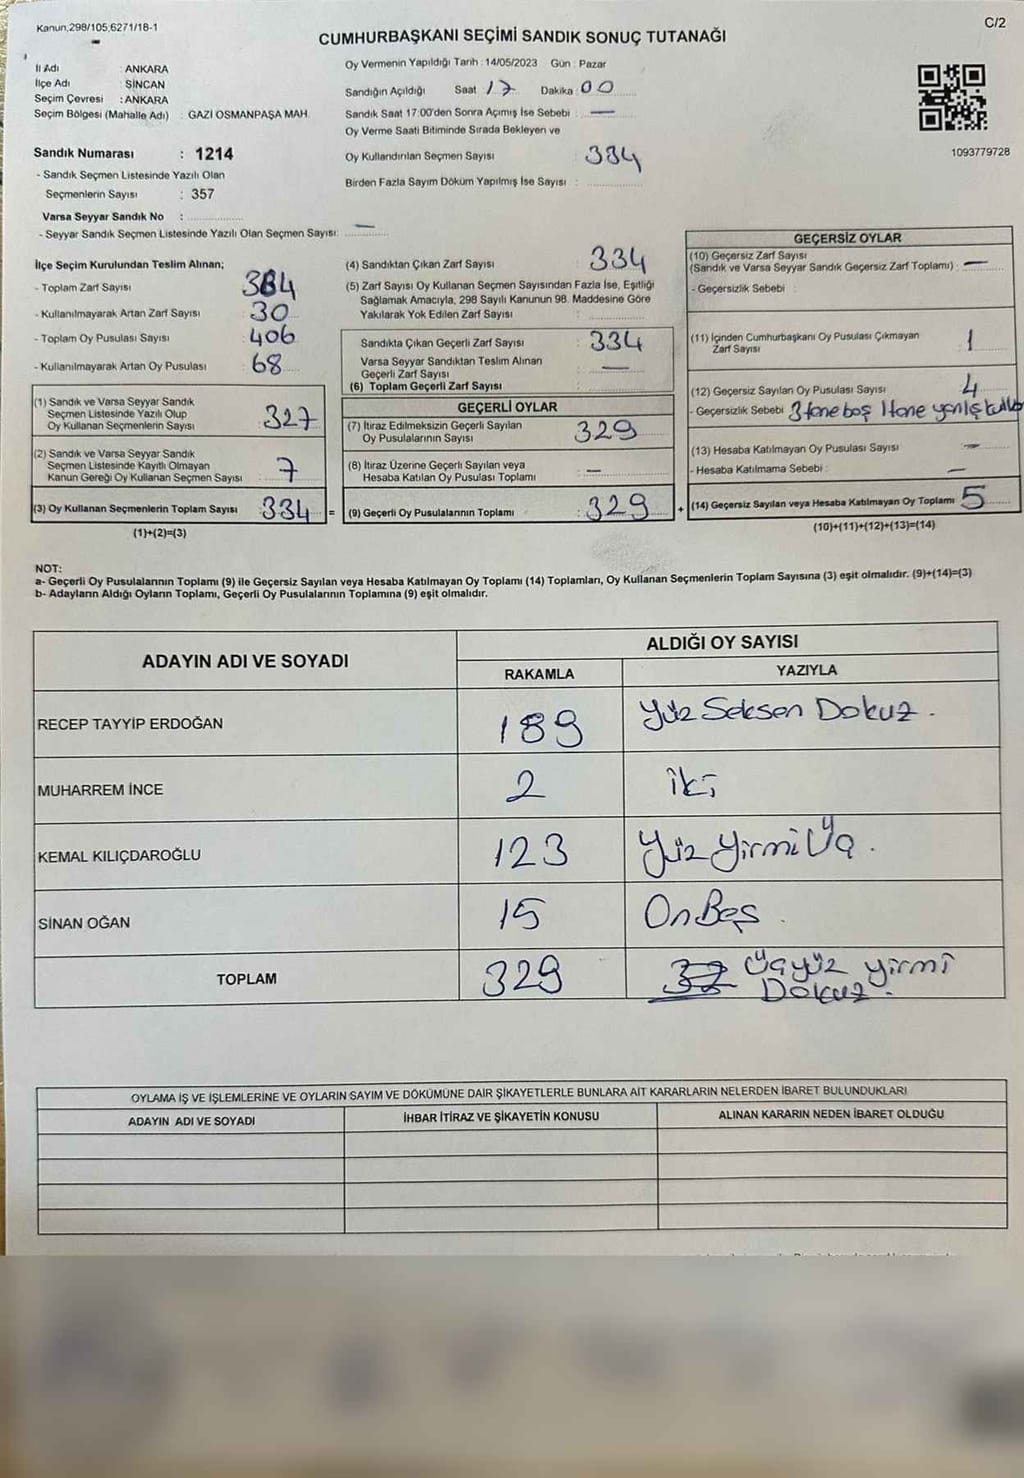 Kanun,298/105,6271/18-1
C/2
CUMHURBAŞKANI SEÇİMİ SANDIK SONUÇ TUTANAĞI
İl Adı : ANKARA
İlçe Adı : SİNCAN
Seçim Çevresi : ANKARA
Seçim Bölgesi (Mahalle Adı) : GAZİ OSMANPAŞA MAH.
Sandık Numarası : 1214
- Sandık Seçmen Listesinde Yazılı Olan
Seçmenlerin Sayısı : 357
Varsa Seyyar Sandık No :
- Seyyar Sandık Seçmen Listesinde Yazılı Olan Seçmen Sayısı: —
Oy Vermenin Yapıldığı Tarih : 14/05/2023 Gün : Pazar
Sandığın Açıldığı Saat 17 Dakika 00
Sandık Saat 17:00'den Sonra Açımış İse Sebebi : —
Oy Verme Saati Bitiminde Sırada Bekleyen ve
Oy Kullandırılan Seçmen Sayısı : 334
Birden Fazla Sayım Döküm Yapılmış İse Sayısı :
1093779728
İlçe Seçim Kurulundan Teslim Alınan;
- Toplam Zarf Sayısı : 364
- Kullanılmayarak Artan Zarf Sayısı : 30
- Toplam Oy Pusulası Sayısı : 406
- Kullanılmayarak Artan Oy Pusulası : 68
(1) Sandık ve Varsa Seyyar Sandık
Seçmen Listesinde Yazılı Olup
Oy Kullanan Seçmenlerin Sayısı : 327
(2) Sandık ve Varsa Seyyar Sandık
Seçmen Listesinde Kayıtlı Olmayan
Kanun Gereği Oy Kullanan Seçmen Sayısı : 7
(3) Oy Kullanan Seçmenlerin Toplam Sayısı : 334 =
(1)+(2)=(3)
(4) Sandıktan Çıkan Zarf Sayısı : 334
(5) Zarf Sayısı Oy Kullanan Seçmen Sayısından Fazla İse, Eşitliği
Sağlamak Amacıyla, 298 Sayılı Kanunun 98. Maddesine Göre
Yakılarak Yok Edilen Zarf Sayısı :
Sandıkta Çıkan Geçerli Zarf Sayısı : 334
Varsa Seyyar Sandıktan Teslim Alınan
Geçerli Zarf Sayısı : —
(6) Toplam Geçerli Zarf Sayısı :
GEÇERLİ OYLAR
(7) İtiraz Edilmeksizin Geçerli Sayılan
Oy Pusulalarının Sayısı : 329
(8) İtiraz Üzerine Geçerli Sayılan veya
Hesaba Katılan Oy Pusulası Toplamı : —
(9) Geçerli Oy Pusulalarının Toplamı : 329 +
GEÇERSİZ OYLAR
(10) Geçersiz Zarf Sayısı
(Sandık ve Varsa Seyyar Sandık Geçersiz Zarf Toplamı) : —
- Geçersizlik Sebebi :
(11) İçinden Cumhurbaşkanı Oy Pusulası Çıkmayan
Zarf Sayısı : 1
(12) Geçersiz Sayılan Oy Pusulası Sayısı : 4
- Geçersizlik Sebebi : 3 tane boş 1 tane yanlış
(13) Hesaba Katılmayan Oy Pusulası Sayısı : —
- Hesaba Katılmama Sebebi : —
(14) Geçersiz Sayılan veya Hesaba Katılmayan Oy Toplamı : 5
(10)+(11)+(12)+(13)=(14)
NOT:
a- Geçerli Oy Pusulalarının Toplamı (9) ile Geçersiz Sayılan veya Hesaba Katılmayan Oy Toplamı (14) Toplamları, Oy Kullanan Seçmenlerin Toplam Sayısına (3) eşit olmalıdır. (9)+(14)=(3)
b- Adayların Aldığı Oyların Toplamı, Geçerli Oy Pusulalarının Toplamına (9) eşit olmalıdır.
ADAYIN ADI VE SOYADI
ALDIĞI OY SAYISI
RAKAMLA YAZIYLA
RECEP TAYYİP ERDOĞAN 189 Yüz Seksen Dokuz.
MUHARREM İNCE 2 iki
KEMAL KILIÇDAROĞLU 123 Yüz Yirmi Üç.
SİNAN OĞAN 15 On Beş.
TOPLAM 329 Üçyüz yirmi
Dokuz.
OYLAMA İŞ VE İŞLEMLERİNE VE OYLARIN SAYIM VE DÖKÜMÜNE DAİR ŞİKAYETLERLE BUNLARA AİT KARARLARIN NELERDEN İBARET BULUNDUKLARI
ADAYIN ADI VE SOYADI İHBAR İTİRAZ VE ŞİKAYETİN KONUSU ALINAN KARARIN NEDEN İBARET OLDUĞU